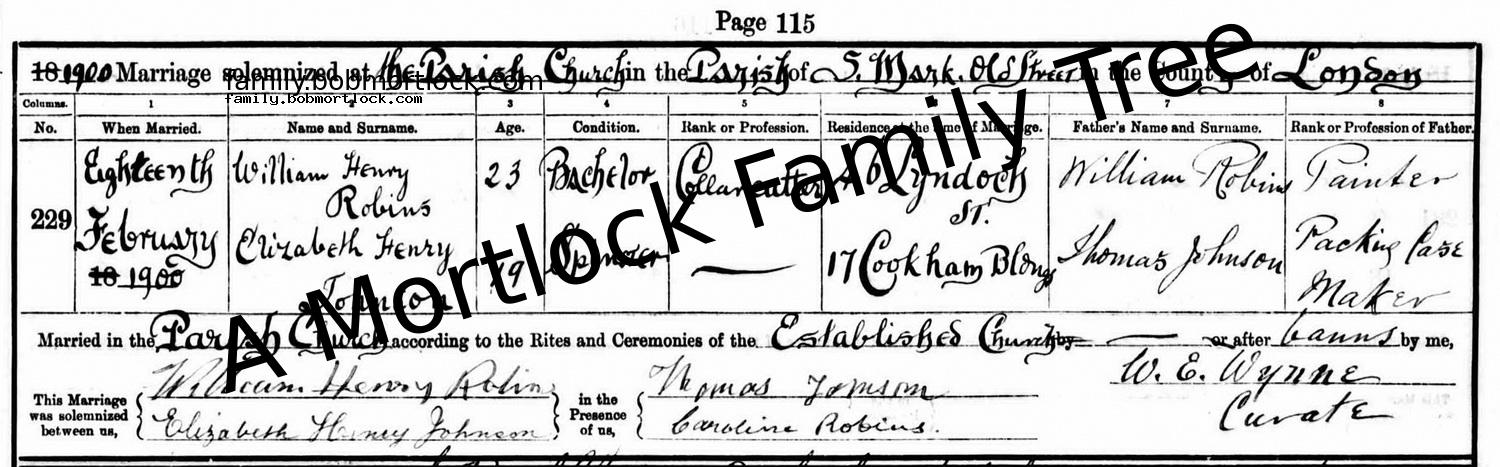 Page 115
18 1900 Marriage solemnized at the Parish Church in the Parish of S. Mark. Old Street in the County of London
family.bobmortlock.com
family.bobmortlock.com
A Mortlock Family Tree
Columns. 1 2 3 4 5 6 7 8
No. When Married. Name and Surname. Age. Condition. Rank or Profession. Residence at the time of Marriage. Father's Name and Surname. Rank or Profession of Father.
229
Eighteenth
February
18 1900
William Henry
Robins
23 Bachelor Collarcutter
Lyndoch
St.
William Robins Painter
Elizabeth Henry
Johnson
19 Spinster — 17 Cookham Bldngs Thomas Johnson Packing Case
Maker
Married in the Parish Church according to the Rites and Ceremonies of the Established Church by — or after banns by me,
This Marriage
was solemnized
between us,
William Henry Robins
Elizabeth Henry Johnson
in the
Presence
of us,
Thomas Jomson
Caroline Robins.
W. E. Wynne
Curate